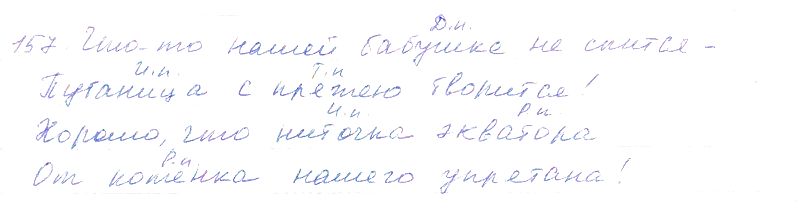 Д.п.
157. Что-то нашей бабушке не спится -
И.п. Т.п
Путаница с пряжею творится!
И.п. Р.п.
Хорошо, что ниточка экватора
Р.п.
От котёнка нашего упрятана!